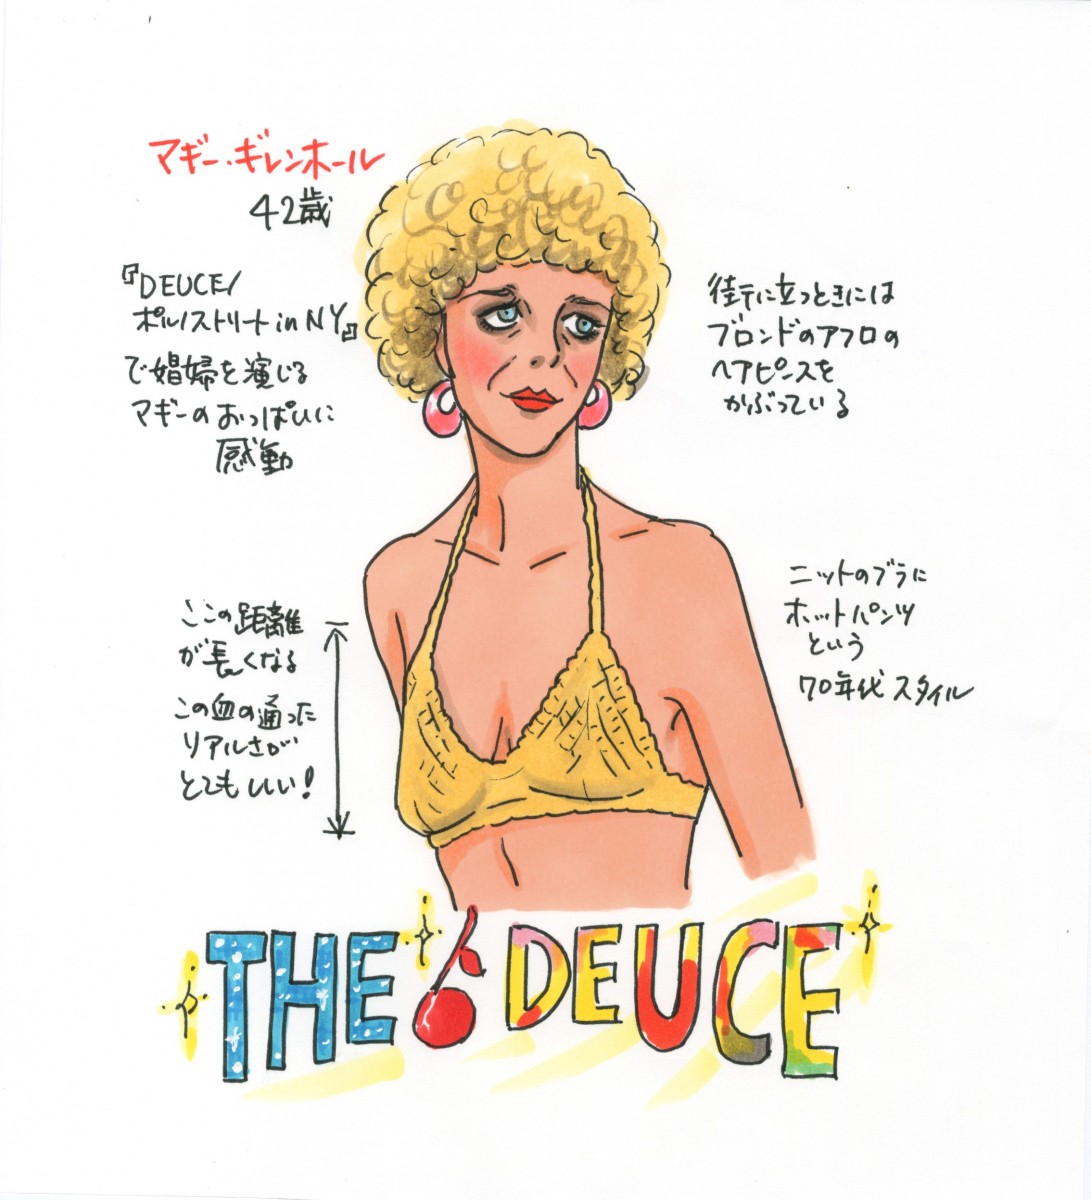 マギー・ギレンホール
42歳
『DEUCE/
ポルノストリート in NY』
で娼婦を演じる
マギーのおっぱいに
感動
街に立つときには
ブロンドのアフロの
ヘアピースを
かぶっている
ここの距離
が長くなる
この血の通った
リアルさが
とてもいい!
ニットのブラに
ホットパンツ
という
70年代スタイル
THE DEUCE